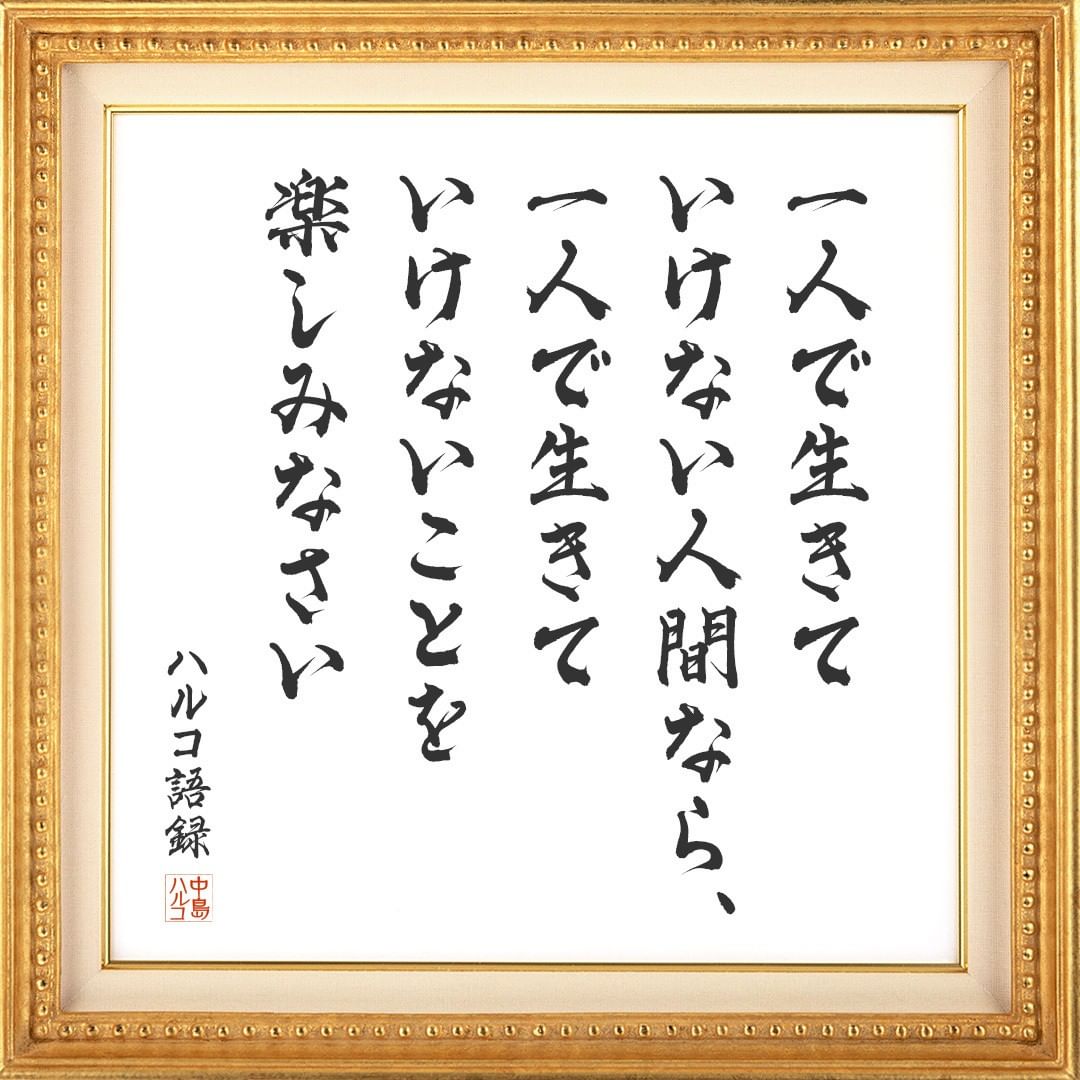 一人で生きて
いけない人間なら、
一人で生きて
いけないことを
楽しみなさい
ハルコ語録
中島
ハルコ